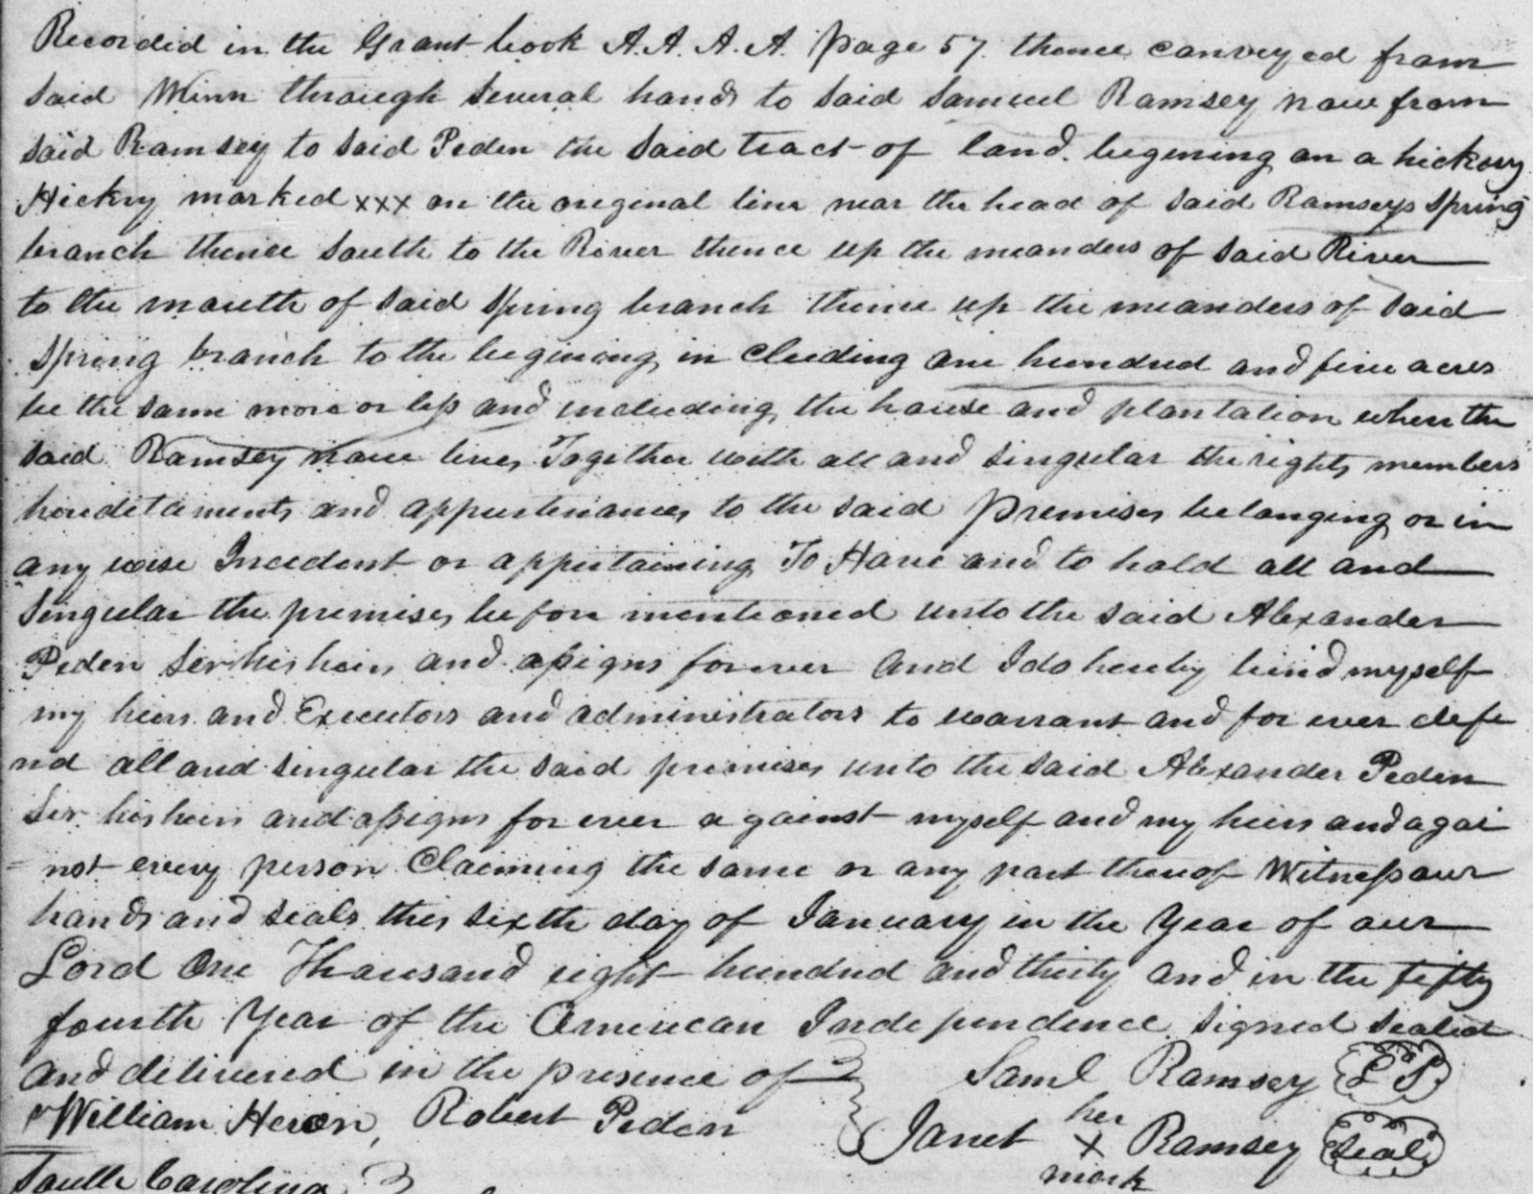 Recorded in the Grant book A.A. A.A. page 57 thence conveyed from
said Winn through several hands to said Samuel Ramsey now from
said Ramsey to said Peden the said tract of land begining on a hickory
Hickry marked xxx on the original line near the head of said Ramseys Spring
branch thence south to the River thence up the meanders of said River
to the mouth of said Spring branch thence up the meanders of said
Spring branch to the begining in cluding one hundred and five acres
be the same more or less and including the house and plantation where the
said Ramsey now lives Together with all and singular the rights members
hereditaments and appurtenances to the said Premises belonging or in
any wise Incedent or appertaining To Have and to hold all and
Singular the premises before mentioned unto the said Alexander
Peden Senr his heirs and assigns forever And I do hereby bind myself
my heirs and Executors and administrators to warrant and for ever defe
nd all and singular the said premises unto the said Alexander Peden
Senr his heirs and assigns for ever against myself and my heirs and agai
nst every person Claiming the same or any part thereof Witness our
hands and seals this sixth day of January in the Year of our
Lord One Thousand eight hundred and thirty and in the fifty
fourth Year of the American Independence signed sealed
and delivered in the presence of
Saml Ramsey L S
William Heron, Robert Peden
her
Janet X Ramsey Seal
mark
South Carolina